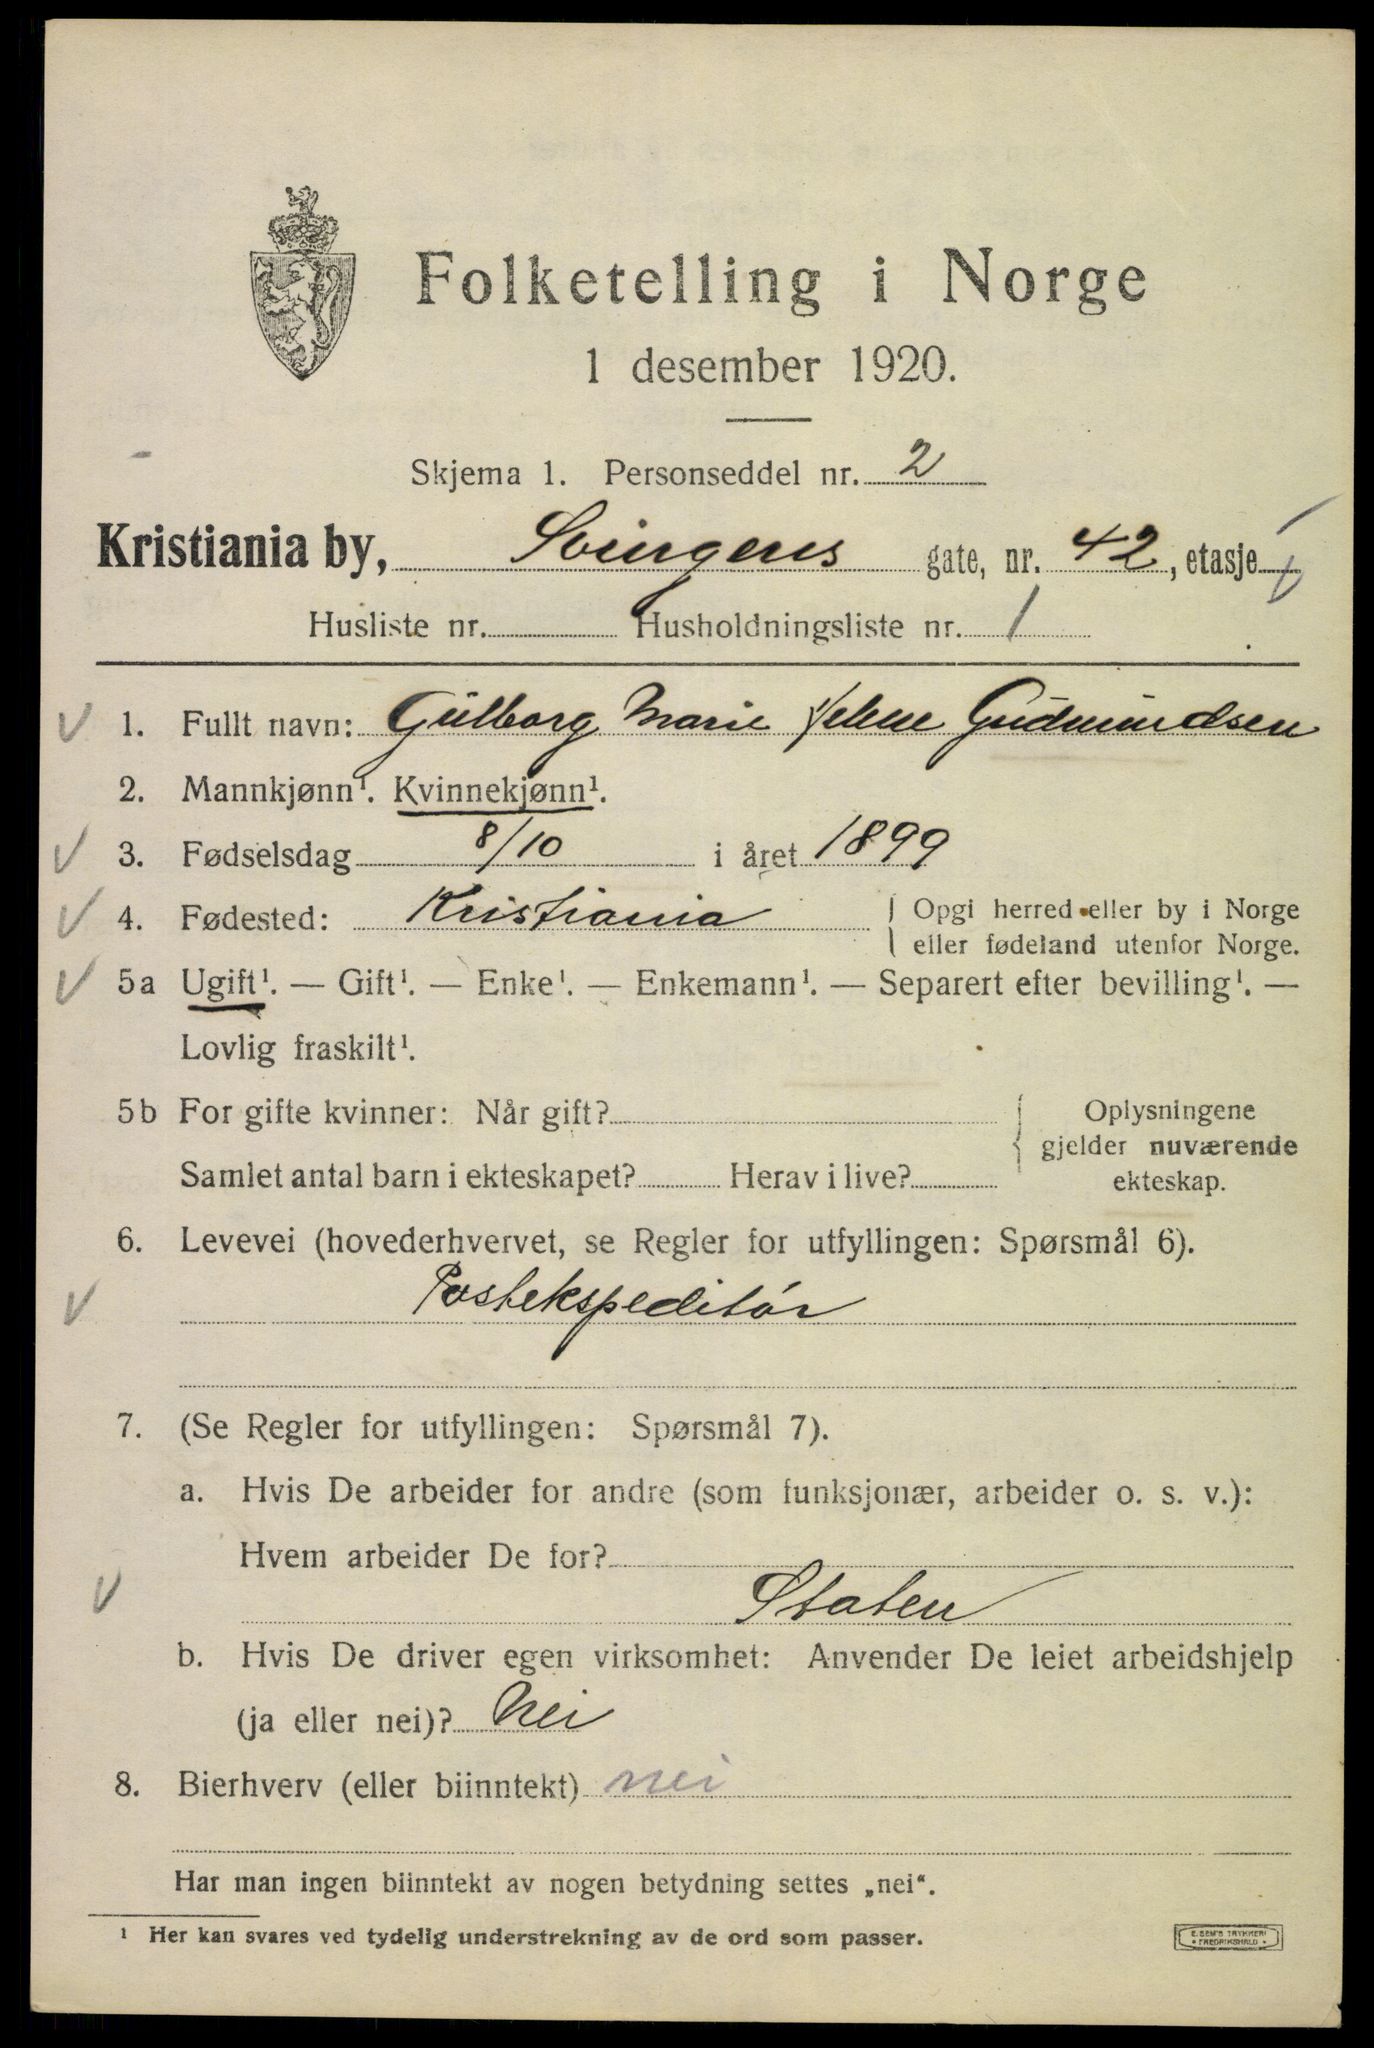 Folketelling i Norge
1 desember 1920.
Skjema 1. Personseddel nr. 2
Kristiania by, Svingens gate, nr. 42, etasje
Husliste nr. Husholdningsliste nr. 1
1. Fullt navn: Gülborg Marie Helene Gudmundsen
2. Mannkjønn¹. Kvinnekjønn¹.
3. Fødselsdag 8/10 i året 1899
4. Fødested: Kristiania Opgi herred eller by i Norge
eller fødeland utenfor Norge.
5a Ugift¹. — Gift¹. — Enke¹. — Enkemann¹. — Separert efter bevilling¹. —
Lovlig fraskilt¹.
5b For gifte kvinner: Når gift? Oplysningene
gjelder nuværende
Samlet antal barn i ekteskapet? Herav i live? ekteskap.
6. Levevei (hovederhvervet, se Regler for utfyllingen: Spørsmål 6).
Postekspeditør
7. (Se Regler for utfyllingen: Spørsmål 7).
a. Hvis De arbeider for andre (som funksjonær, arbeider o. s. v.):
Hvem arbeider De for?
Staten
b. Hvis De driver egen virksomhet: Anvender De leiet arbeidshjelp
(ja eller nei)? Nei
8. Bierhverv (eller biinntekt) nei
Har man ingen biinntekt av nogen betydning settes „nei“.
¹ Her kan svares ved tydelig understrekning av de ord som passer.
E. SEM'S TRYKKERI
• FREDRIKSHALD •